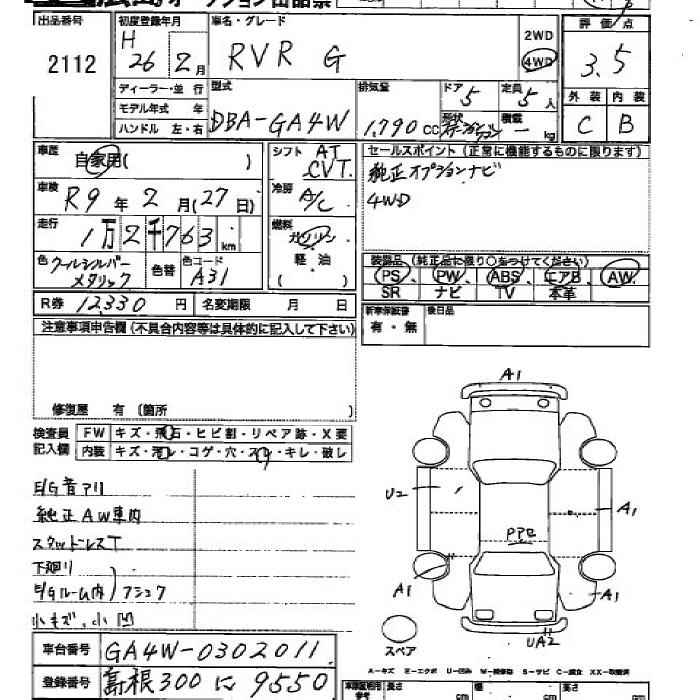 オークション出品票
出品番号
2112
初度登録年月
H 26 年 2 月
車名・グレード
RVR G
2WD
4WD
評価点
3.5
外装 内装
C B
ディーラー・並 行
モデル年式 年
ハンドル 左・右
型式
DBA-GA4W
排気量
1,790 cc
ドア
5
形状
ステーションワゴン
定員
5 人
積載
- kg
車歴
自家用( )
車検
R9 年 2 月 (27 日)
走行
1万2千763 km
色 クールシルバーメタリック
色替
色コード
A31
シフト AT
CVT
冷房
A/C
燃料
ガソリン
軽油
( )
セールスポイント(正常に機能するものに限ります)
純正オプションナビ
4WD
装備品(純正品に限り○をつけてください)
PS、 PW、 ABS、 エアB、 AW、
SR ナビ TV 本革
R券 12330 円
名変期限 月 日
新車保証書
有・無
後日品
注意事項申告欄(不具合内容等は具体的に記入して下さい)
修復歴 有(箇所 )
検査員
記入欄
FW キズ・飛石・ヒビ割・リペア跡・X要
内装 キズ・汚レ・コゲ・穴・スレ・キレ・破レ
E/G音アリ
純正AW車内
スタッドレスT
下廻リ
E/Gルーム内)フショク
小キズ、小凹
A1
U2
A1
Pアセ
A1
A1
UA2
スペア
A-キズ E-エクボ U-凹み W-補修跡 S-サビ C-腐食 XX-取替済
車台番号
GA4W-0302011
登録番号
島根300に9550
長さ
cm
幅
cm
高さ
cm